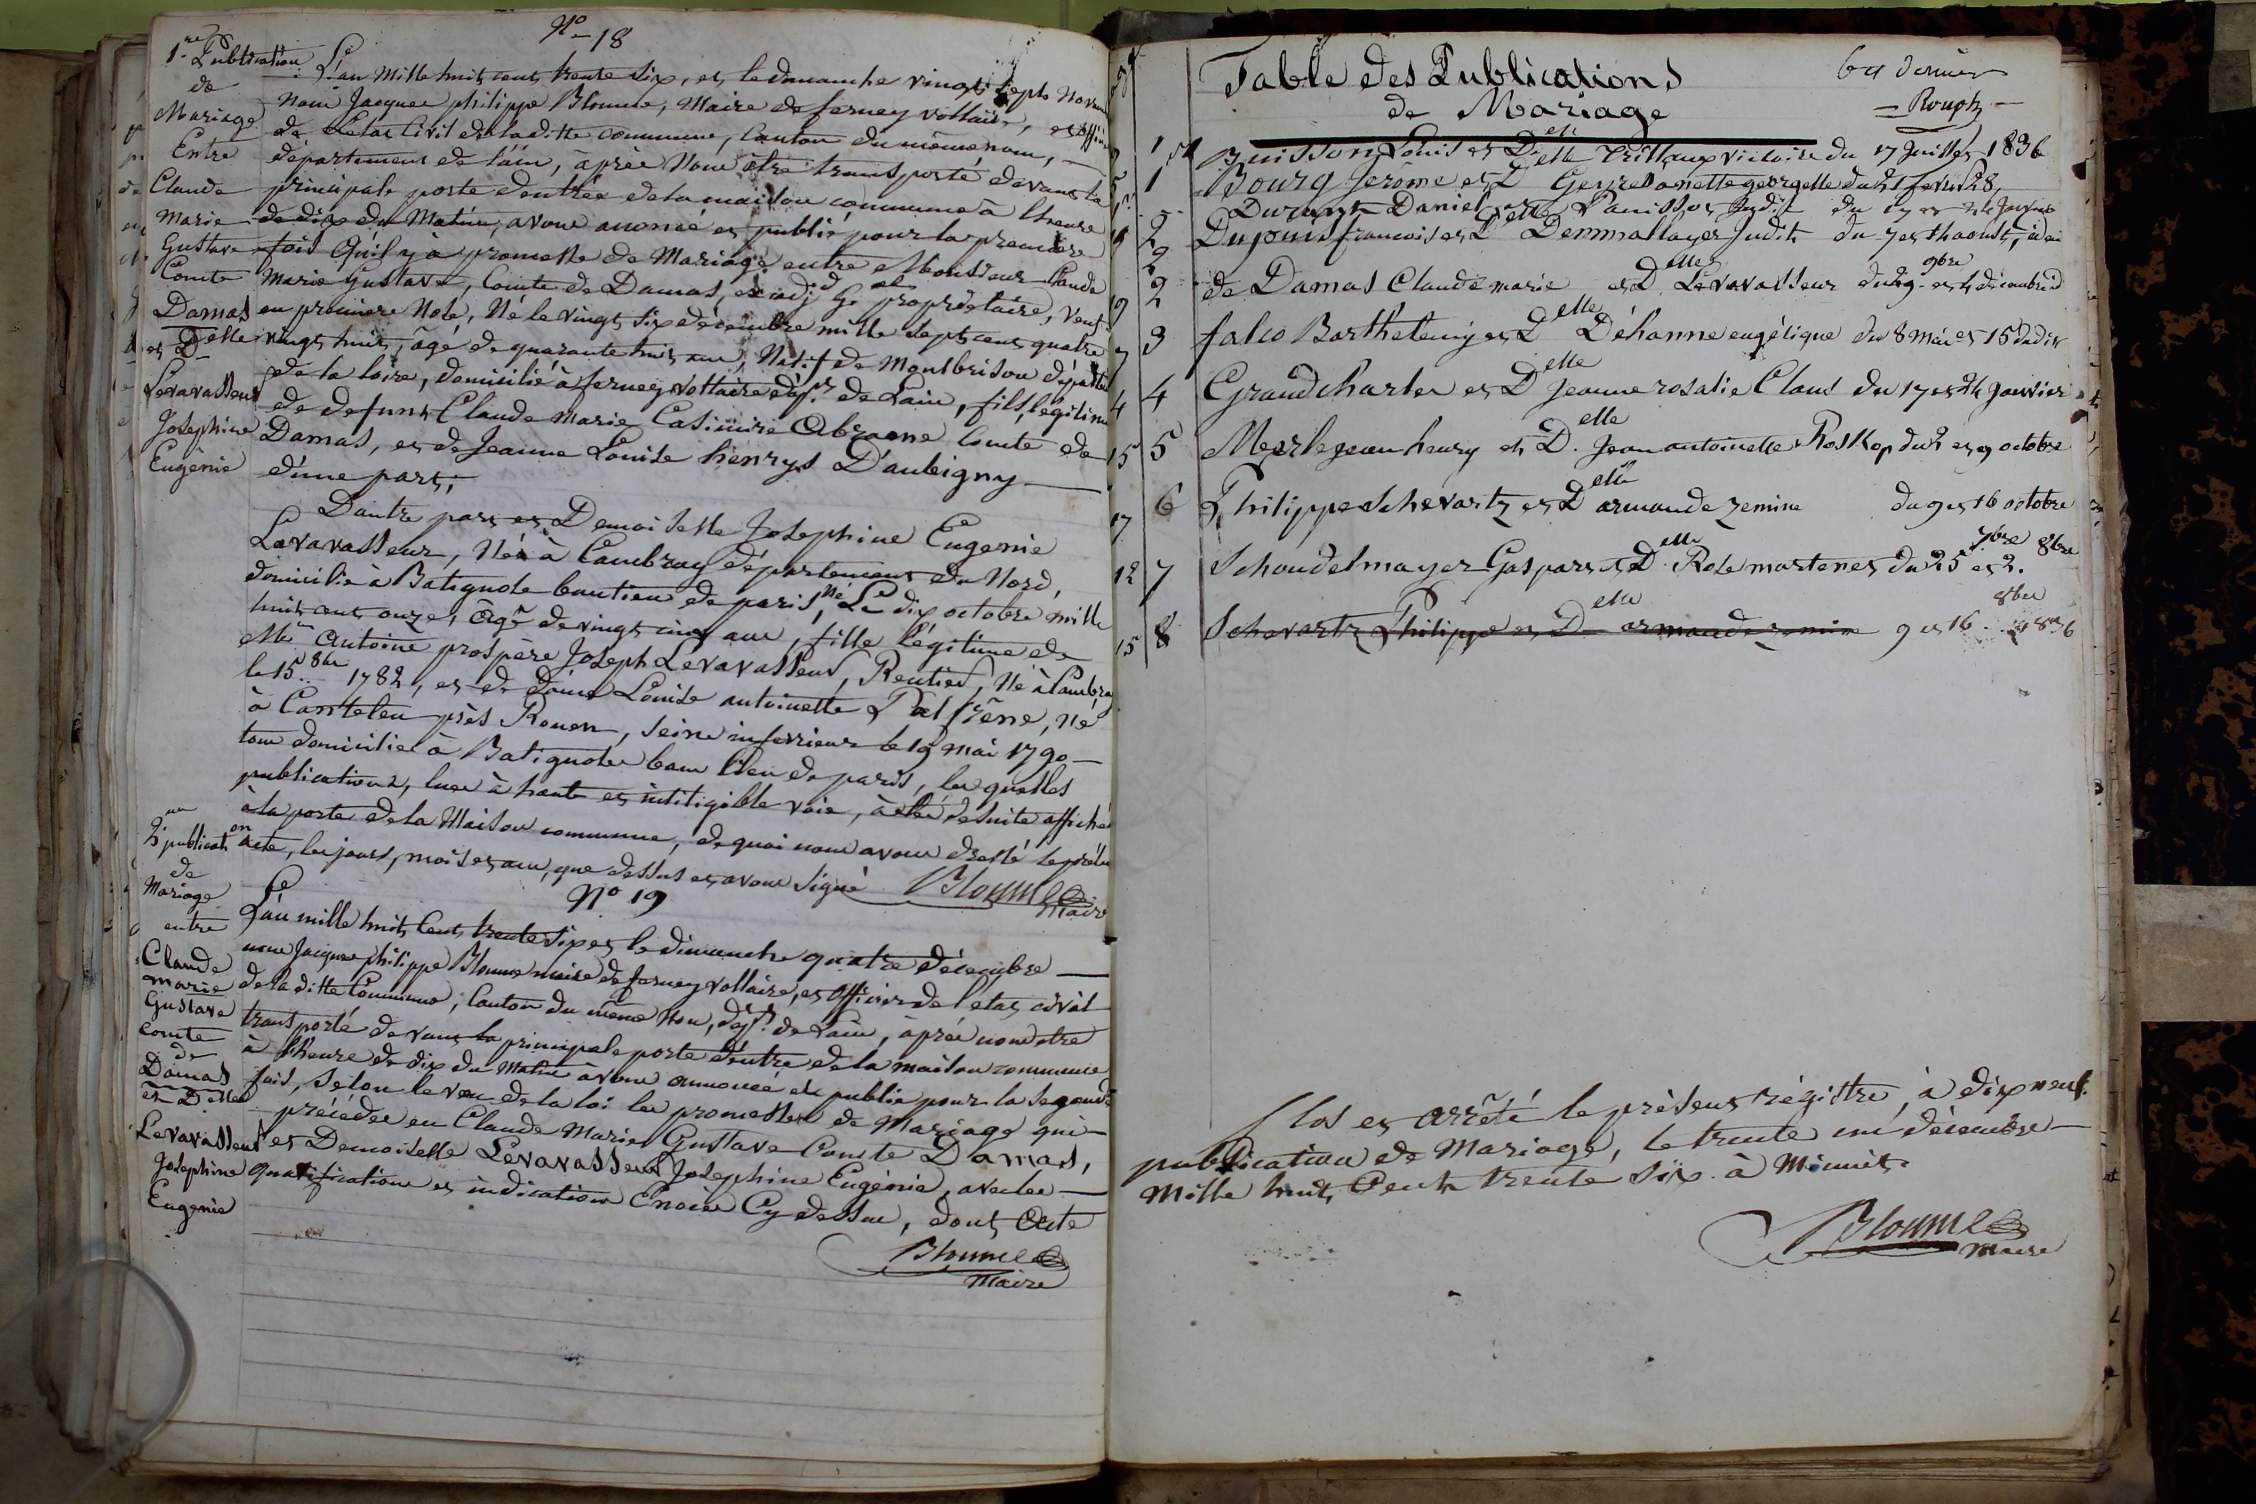 No 18
1re Publication
de
Mariage
Entre
Claude
Marie
Gustave
Comte
Damas
et Delle
Levavasseur
Josephine
Eugènie
L'an mille huit cent trente six, et le dimanche vingt sept Novem
Nous Jacques philippe Blonne, Maire de ferney voltaire, et offici
de l'etat Civil de la ditte commune, Canton du même nom,
département de l'ain, àprès Nous être transporté devant la
principale porte d'entrée de la maison commune à l'heure
de dix du Matin, avons anoncé et publié pour la première
fois qu'il y à promesse de Mariage entre Monsieur Claude
Marie Gustave, Comte de Damas, propriétaire, Veuf
en première Noce, Né le vingt six décembre mille sept cent quatre
vingt huit, âgé de quarante huit ans, Natif de Montbrison départ
de la loire, domicilié à ferney voltaire dépt de L'ain, fils légitime
de defunt Claude Marie Casimire Abraone Comte de
Damas, et de Jeanne Louise henrys D'aubigny
d'une part;
D'autre part et Demoiselle Josephine Eugenie
Levavasseur, Née à Cambray département du Nord,
domicilié à Batignole bantieu de paris, née Le dix octobre mille
huit cent onze, âgé de vingt cinq ans, fille légitime de
Mr Antoine prospère Joseph Levavasseur, Rentier, Né à Cambray
le 15 8bre 1782, et de dame Louise antoinette Palfrêne, Né
à Canteleu près Rouen, Seine inferrieur le 19 mai 1790
tous domicilié à Batignole bantlieu de paris, les quelles
publications, lues à haute et intiligible voie, à été de suite affiché
à la porte de la Maison commune, de quoi nous avons dressé le présen
acte, les jours, mois et an, que dessus et avons signé Blonne
Maire
2me publication
de
Mariage
entre
Claude
marie
Gustave
comte
de
Damas
et Delle
Levavasseur
Josephine
Eugenie
No 19
L'an mille huit Cent trente six et le dimanche quatre décembre
nous Jacques philippe Blonne maire de ferney voltaire, et officier de l'etat civil
de la ditte Commune, Canton du même Nom, dépt de L'ain, àprès nous être
transporté devant la principale porte d'entre de la maison commune
à l'heure de dix du Matin avons annoncé et publie pour la segonde
fois, selon le vœu de la loi les promesses de Mariage qui
précéder en Claude Marie Gustave Comte Damas,
et Demoiselle Levavasseur Josephine Eugénie, avec les
qualifications et indication Enoiés Cy dessus, dont Acte
Blonne
Maire
Table des Publications
de Mariage
6e et dernier
Rouph
1 Buisson Louis et Delle Trillaux victoire du 17 Juillet 1836
1 Bourg Jerome et Delle Georgette du 21 fevrier 28
2 Durant Daniel et Delle Panissos Judit du 17 et 24 Janvier
2 Dupuis francois et Delle Demmallayer Judit du 7 et 14 aoust,
2 de Damas Claude marie et Delle Levavasseur du 9bre et 4 décembre
3 falco Barthelemy et Delle Déhanne engélique du 8 mai et 15 dudit
4 Grand charles et Delle Jeanne rosalie Claus du 17 et 24 Janvier
5 Merle jean henry et Delle Jean antoinette Roskop du 2 et 9 octobre
6 Philippe Schevartz et Delle armande zemine du 9 et 16 octobre
7 Schoudelmayer Gaspart et Delle Rose martener du 25 7bre et 2. 8bre
8 Schevartz Philippe et Delle armande zemine 9 et 16 8bre 1836
Clos et arrêté le présent régistre, à dix neuf
publication de Mariage, le trente un décembre
Mille huit Cent trente six à Minuit.
Blonne
Maire